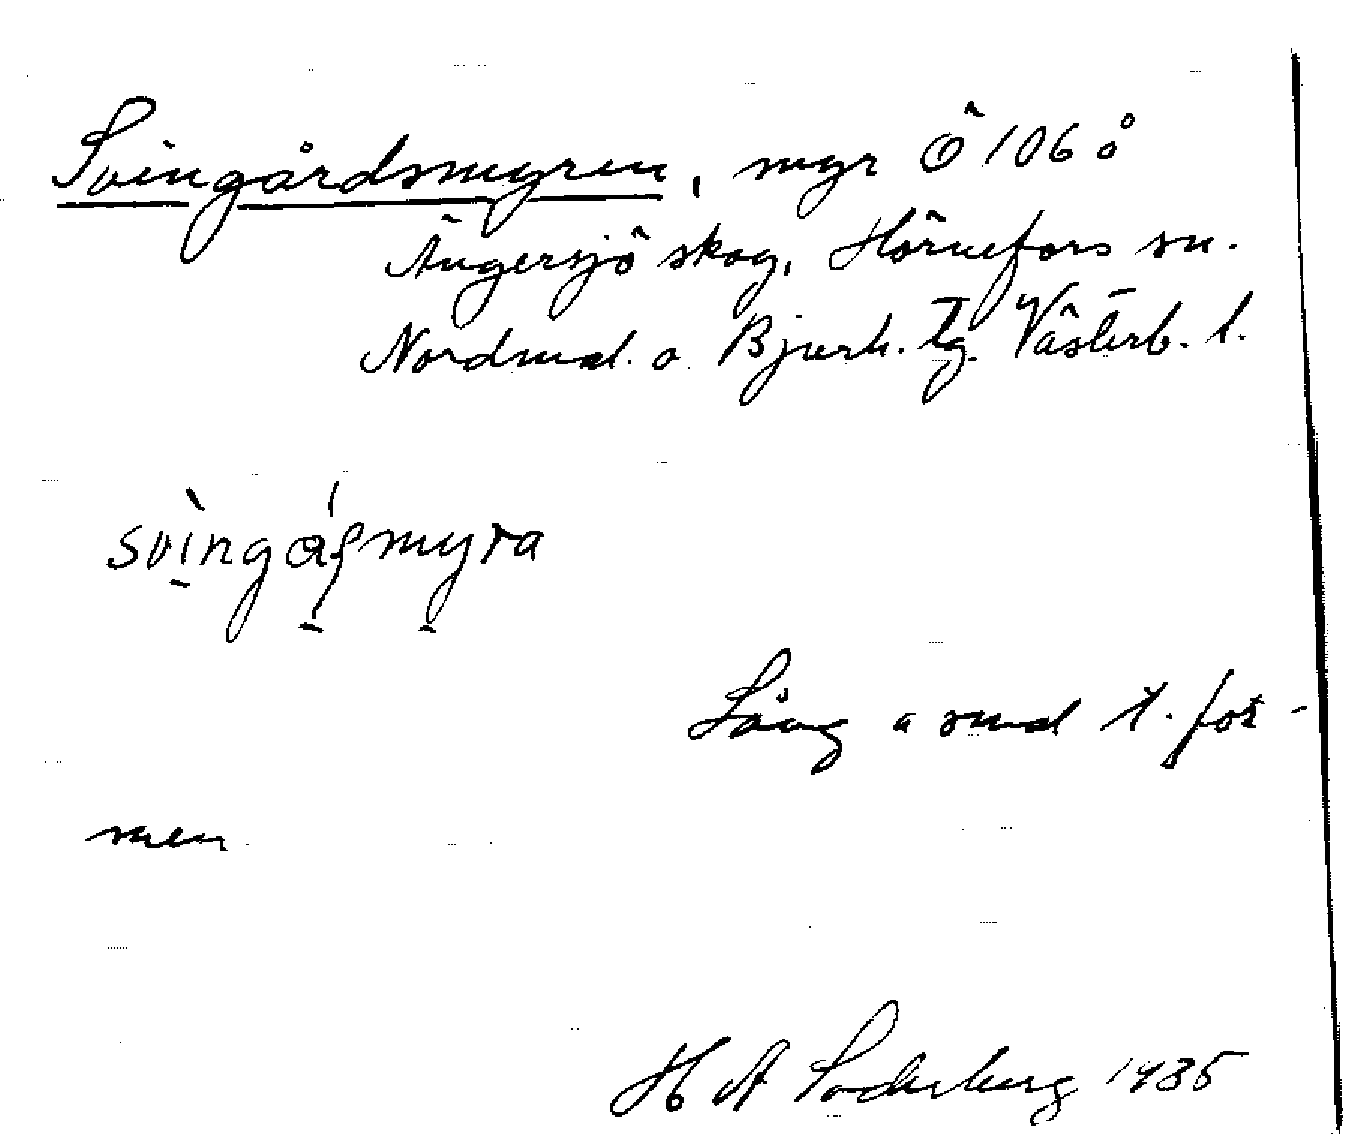 Svingårdsmyren, myr Ö 106 å
Ängersjö skog, Hörnefors sn.
Nordmal. o. Bjurh. tg. Västerb. l.
svingåsmyra
Lång o smal t. for-
men
H A Söderberg 1935